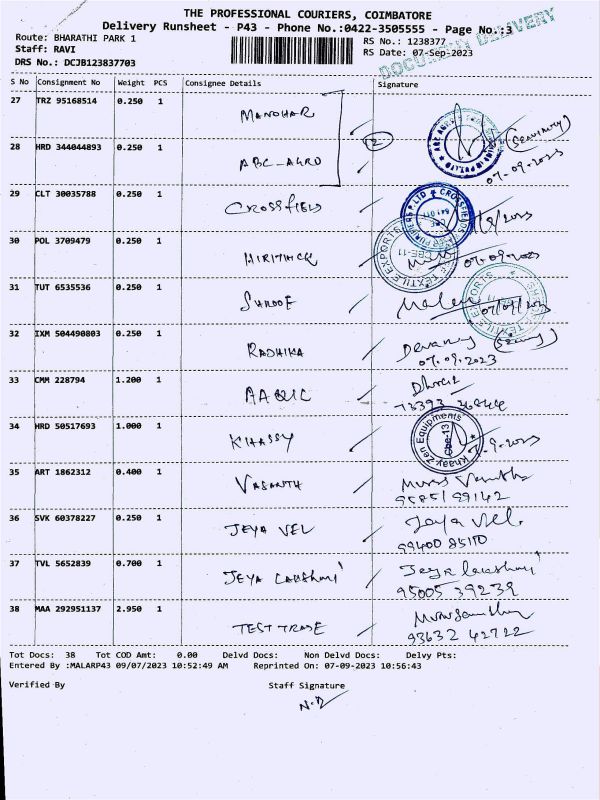 THE PROFESSIONAL COURIERS, COIMBATORE
Delivery Runsheet - P43 - Phone No.:0422-3505555 - Page No.:3
Route: BHARATHI PARK 1
Staff: RAVI
DRS No.: DCJB123837703
RS No.: 1238377
RS Date: 07-Sep-2023
DOCUMENT DELIVERY
S No Consignment No Weight PCS Consignee Details Signature
27 TRZ 95168514 0.250 1 MANOHAR
28 HRD 344044893 0.250 1 ABC-AGRO 12 (Security) 07-09-2023
29 CLT 30035788 0.250 1 CROSSFIELD
30 POL 3709479 0.250 1 HIRITHICK 07-09-2023
31 TUT 6535536 0.250 1
32 IXM 504490803 0.250 1 RADHIKA 07.09.2023
33 CMM 228794 1.200 1
34 HRD 50517693 1.000 1 KHASSY
Khaay Zen Equipments
cbe-13
35 ART 1862312 0.400 1 VASANTH
95851 99142
36 SVK 60378227 0.250 1 JEYA VEL Jeya Vel.
99400 85110
37 TVL 5652839 0.700 1 JEYA LAKSHMI Jeya lakshmi
95005 39239
38 MAA 292951137 2.950 1 TEST TRADE
93632 42722
Tot Docs: 38 Tot COD Amt: 0.00 Delvd Docs: Non Delvd Docs: Delvy Pts:
Entered By :MALARP43 09/07/2023 10:52:49 AM Reprinted On: 07-09-2023 10:56:43
Verified By Staff Signature